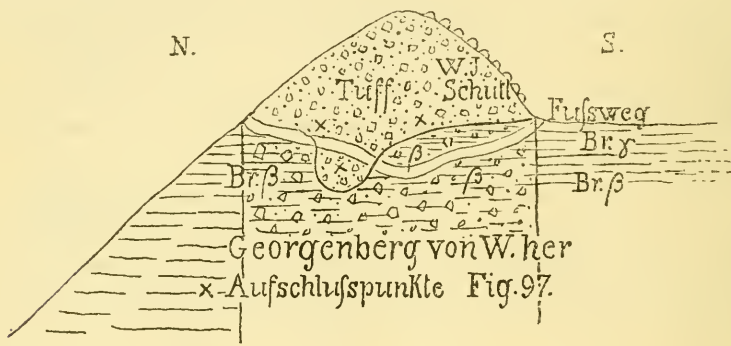 N. S.
W.J.
Tuff Schutt
Fuſsweg
Br. γ
β
Br. β β Br. β
Georgenberg von W. her
x Aufschluſspunkte Fig. 97.